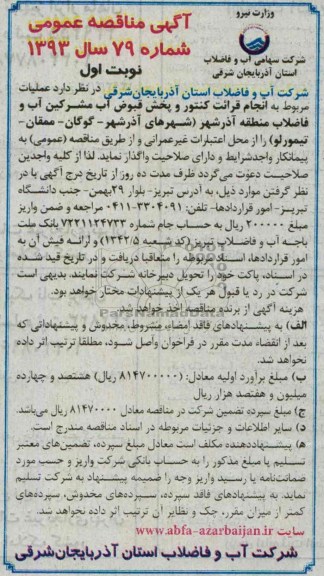 وزارت نیرو
آگهی مناقصه عمومی
شماره ۷۹ سال ۱۳۹۳
نوبت اول
شرکت سهامی آب و فاضلاب
استان آذربایجان شرقی
شرکت آب و فاضلاب استان آذربایجان‌شرقی در نظر دارد عملیات
مربوط به انجام قرائت کنتور و پخش قبوض آب مشترکین آب و
فاضلاب منطقه آذرشهر (شهرهای آذرشهر - گوگان- ممقان-
تیمورلو) را از محل اعتبارات غیرعمرانی و از طریق مناقصه (عمومی) به
پیمانکار واجدشرایط و دارای صلاحیت واگذار نماید. لذا از کلیه واجدین
صلاحیت دعوت می‌گردد ظرف مدت ده روز از تاریخ درج آگهی با در
نظر گرفتن موارد ذیل، به آدرس تبریز- بلوار ۲۹بهمن- جنب دانشگاه
تبریز- امور قراردادها- تلفن: ۳۳۰۴۰۹۱-۰۴۱۱ مراجعه و ضمن واریز
مبلغ ۲۰۰۰۰۰ ریال به حساب جام شماره ۷۲۲۱۱۲۴۷۳۳ بانک ملت
باجه آب و فاضلاب تبریز (کد شعبه ۱۳۴۲/۵) و ارائه فیش آن به
امور قراردادها، اسناد مربوطه را متعاقبا دریافت و در تاریخ قید شده
در اسناد، پاکت خود را تحویل دبیرخانه شرکت نمایند. بدیهی است
شرکت در رد یا قبول هر یک از پیشنهادات مختار خواهد بود.
هزینه آگهی از برنده مناقصه اخذ خواهد شد.
الف) به پیشنهادهای فاقد امضاء، مشروط، مخدوش و پیشنهاداتی که
بعد از انقضاء مدت مقرر در فراخوان واصل شود، مطلقا ترتیب اثر داده
نخواهد شد.
ب) مبلغ برآورد اولیه معادل: (۸۱۴۷۰۰۰۰۰ ریال) هشتصد و چهارده
میلیون و هفتصد هزار ریال
ج) مبلغ سپرده تضمین شرکت در مناقصه معادل ۸۱۴۷۰۰۰۰ ریال می‌باشد.
د) سایر اطلاعات و جزئیات مربوطه در اسناد مناقصه مندرج است.
ه) پیشنهاددهنده مکلف است معادل مبلغ سپرده، تضمین‌های معتبر
تسلیم یا مبلغ مذکور را به حساب بانکی شرکت واریز و حسب مورد
ضمانت‌نامه یا رسید واریز وجه را ضمیمه پیشنهاد به شرکت تسلیم
نماید. به پیشنهادهای فاقد سپرده، سپرده‌های مخدوش، سپرده‌های
کمتر از میزان مقرر، چک و نظایر آن ترتیب اثر داده نخواهد شد.
سایت www.abfa-azarbaijan.ir
شرکت آب و فاضلاب استان آذربایجان‌شرقی